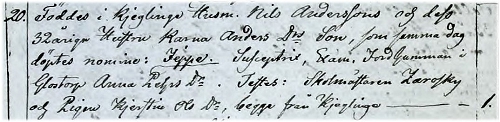 20. Föddes i Kjeglinge Husm. Nils Anderssons och dess
32åriga Hustru Karna Anders Drs Son, som samma dag
döptes nomine: Jeppe. Susceptrix, Exam. Jordgumman i
Glostorp Anna Pehrs Dr. Testes: Skolmästaren Zarofsky
och Pigan Kjerstin Ols Dr, begge från Kjeglinge — 1.